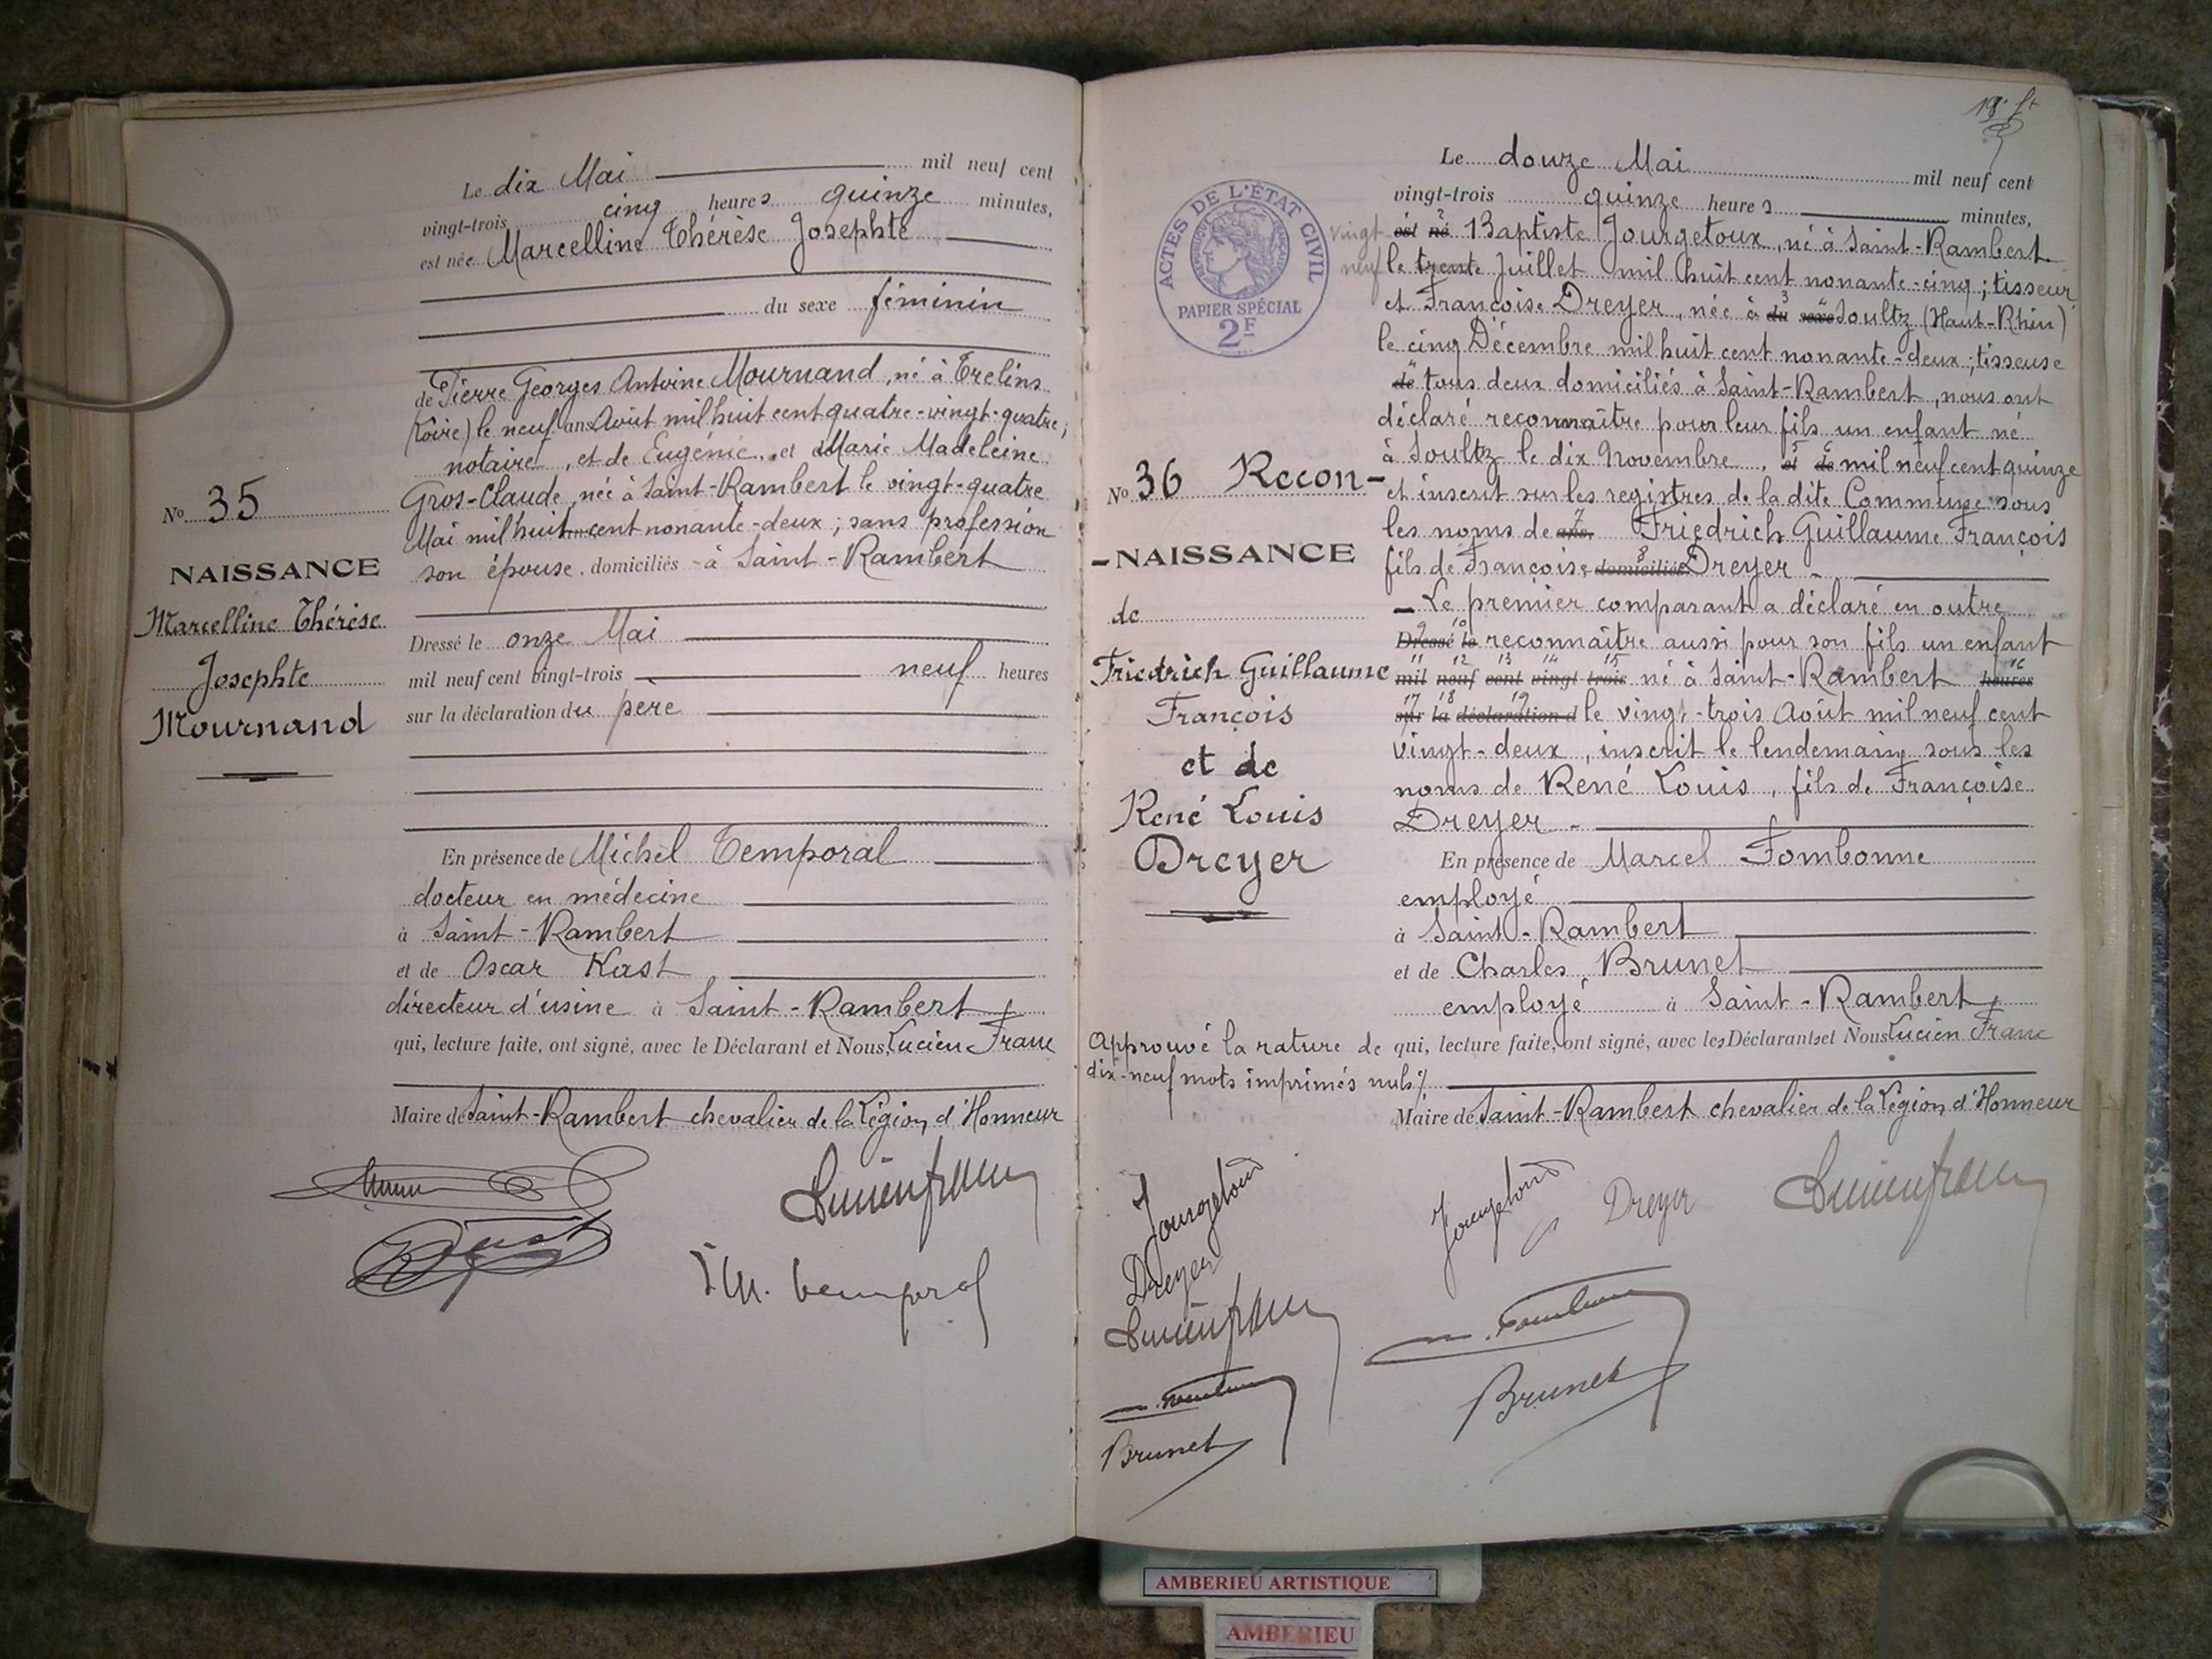 Le dix Mai mil neuf cent
vingt-trois cinq heures quinze minutes,
est née Marcelline Thérèse Josephte
du sexe féminin
de Pierre Georges Antoine Mournand, né à Trelins
(Loire) le neuf ans Août mil huit cent quatre-vingt-quatre;
notaire, et de Eugénie, et Marie Madeleine
Gros-Claude, née à Saint-Rambert le vingt-quatre
Mai mil huit cent nonante-deux; sans profession
son épouse, domiciliés à Saint-Rambert
No 35
NAISSANCE
Marcelline Thérèse
Josephte
Mournand
Dressé le onze Mai
mil neuf cent vingt-trois neuf heures
sur la déclaration du père
En présence de Michel Temporal
docteur en médecine
à Saint-Rambert
et de Oscar Kast
directeur d'usine à Saint-Rambert
qui, lecture faite, ont signé, avec le Déclarant et Nous, Lucien Franc
Maire de Saint-Rambert chevalier de la Légion d'Honneur
Lucien franc
M. Temporal
Le douze Mai mil neuf cent
vingt-trois quinze heures minutes,
vingt est né 2 Baptiste Jourgetoux, né à Saint-Rambert
neuf le trente Juillet mil huit cent nonante-cinq; tisseur
et Françoise Dreyer, née à du 3 sexe Soultz (Haut-Rhin)
le cinq Décembre mil huit cent nonante-deux; tisseuse
de tous deux domiciliés à Saint-Rambert, nous ont
déclaré reconnaître pour leur fils un enfant né
à Soultz le dix Novembre, et 5 de 6 mil neuf cent quinze
et inscrit sur les registres de la dite Commune sous
les noms de ans, 7 Friedrich Guillaume François
fils de Françoise domiciliés 8 Dreyer
- Le premier comparant a déclaré en outre
Dressé 9 le 10 reconnaître aussi pour son fils un enfant
mil 11 neuf 12 cent 13 vingt 14 trois 15 né à Saint-Rambert heures 16
sur 17 la 18 déclaration d 19 le vingt-trois Août mil neuf cent
vingt-deux, inscrit le lendemain sous les
noms de René Louis, fils de Françoise
Dreyer
ACTES DE L'ÉTAT CIVIL
PAPIER SPÉCIAL
2F
No 36 Recon-
-NAISSANCE
de
Friedrich Guillaume
François
et de
René Louis
Dreyer
En présence de Marcel Fombonne
employé
à Saint-Rambert
et de Charles Brunet
employé à Saint-Rambert
Approuvé la rature de
dix-neuf mots imprimés nuls
qui, lecture faite, ont signé, avec les Déclarants et Nous Lucien Franc
Maire de Saint-Rambert chevalier de la Légion d'Honneur
Jourgetoux
Dreyer
Lucien franc
Brunet
Jourgetoux
Dreyer
Lucien franc
Brunet
AMBERIEU ARTISTIQUE
AMBERIEU